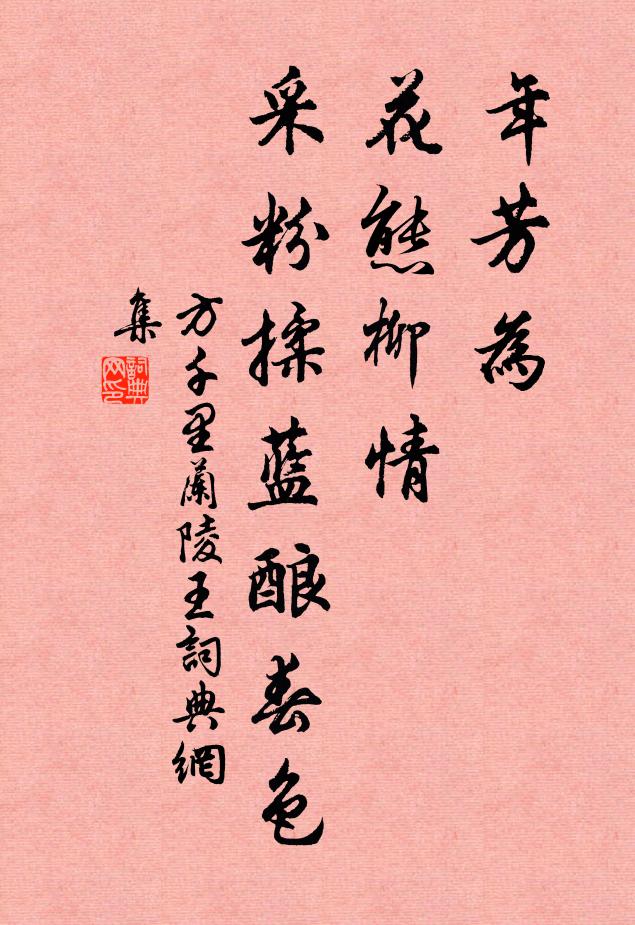 年芳為
花態柳情
采粉揉藍酿春色
方千里蘭陵王詞典網
集
詞典网印